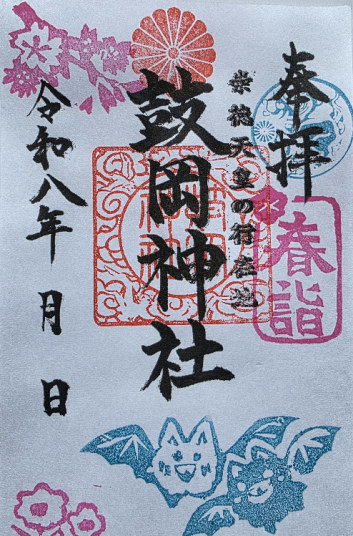 奉拝
春詣
崇徳天皇の行在所
鼓岡神社
令和八年 月 日